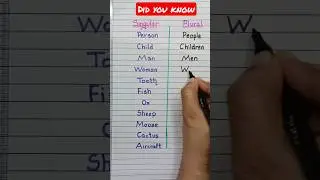 DID YOU KNOW
Singular Plural
Person People
Child Children
Man Men
Woman W
Tooth
Fish
Ox
Sheep
Moose
Cactus
Aircraft